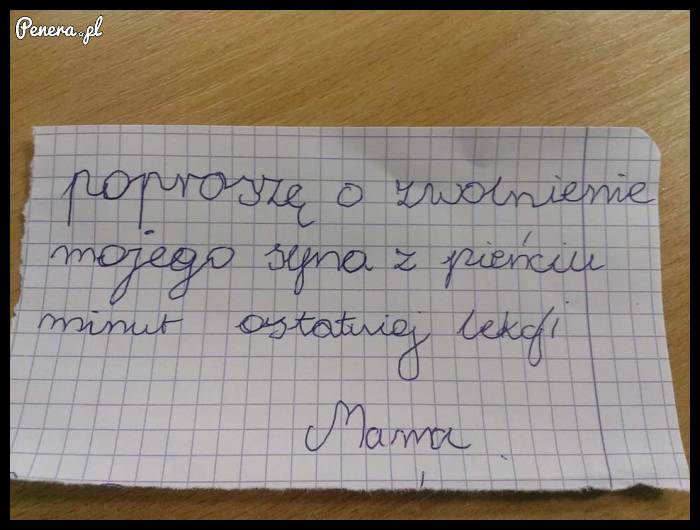 Penera.pl
poproszę o zwolnienie
mojego syna z pieńciu
minut ostatniej lekcji
Mama